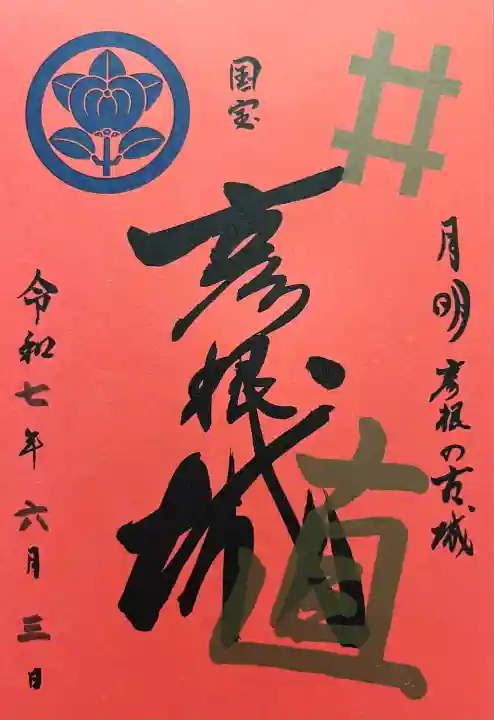 井
月明彦根の古城
国宝
彦根城
直
令和七年六月三日